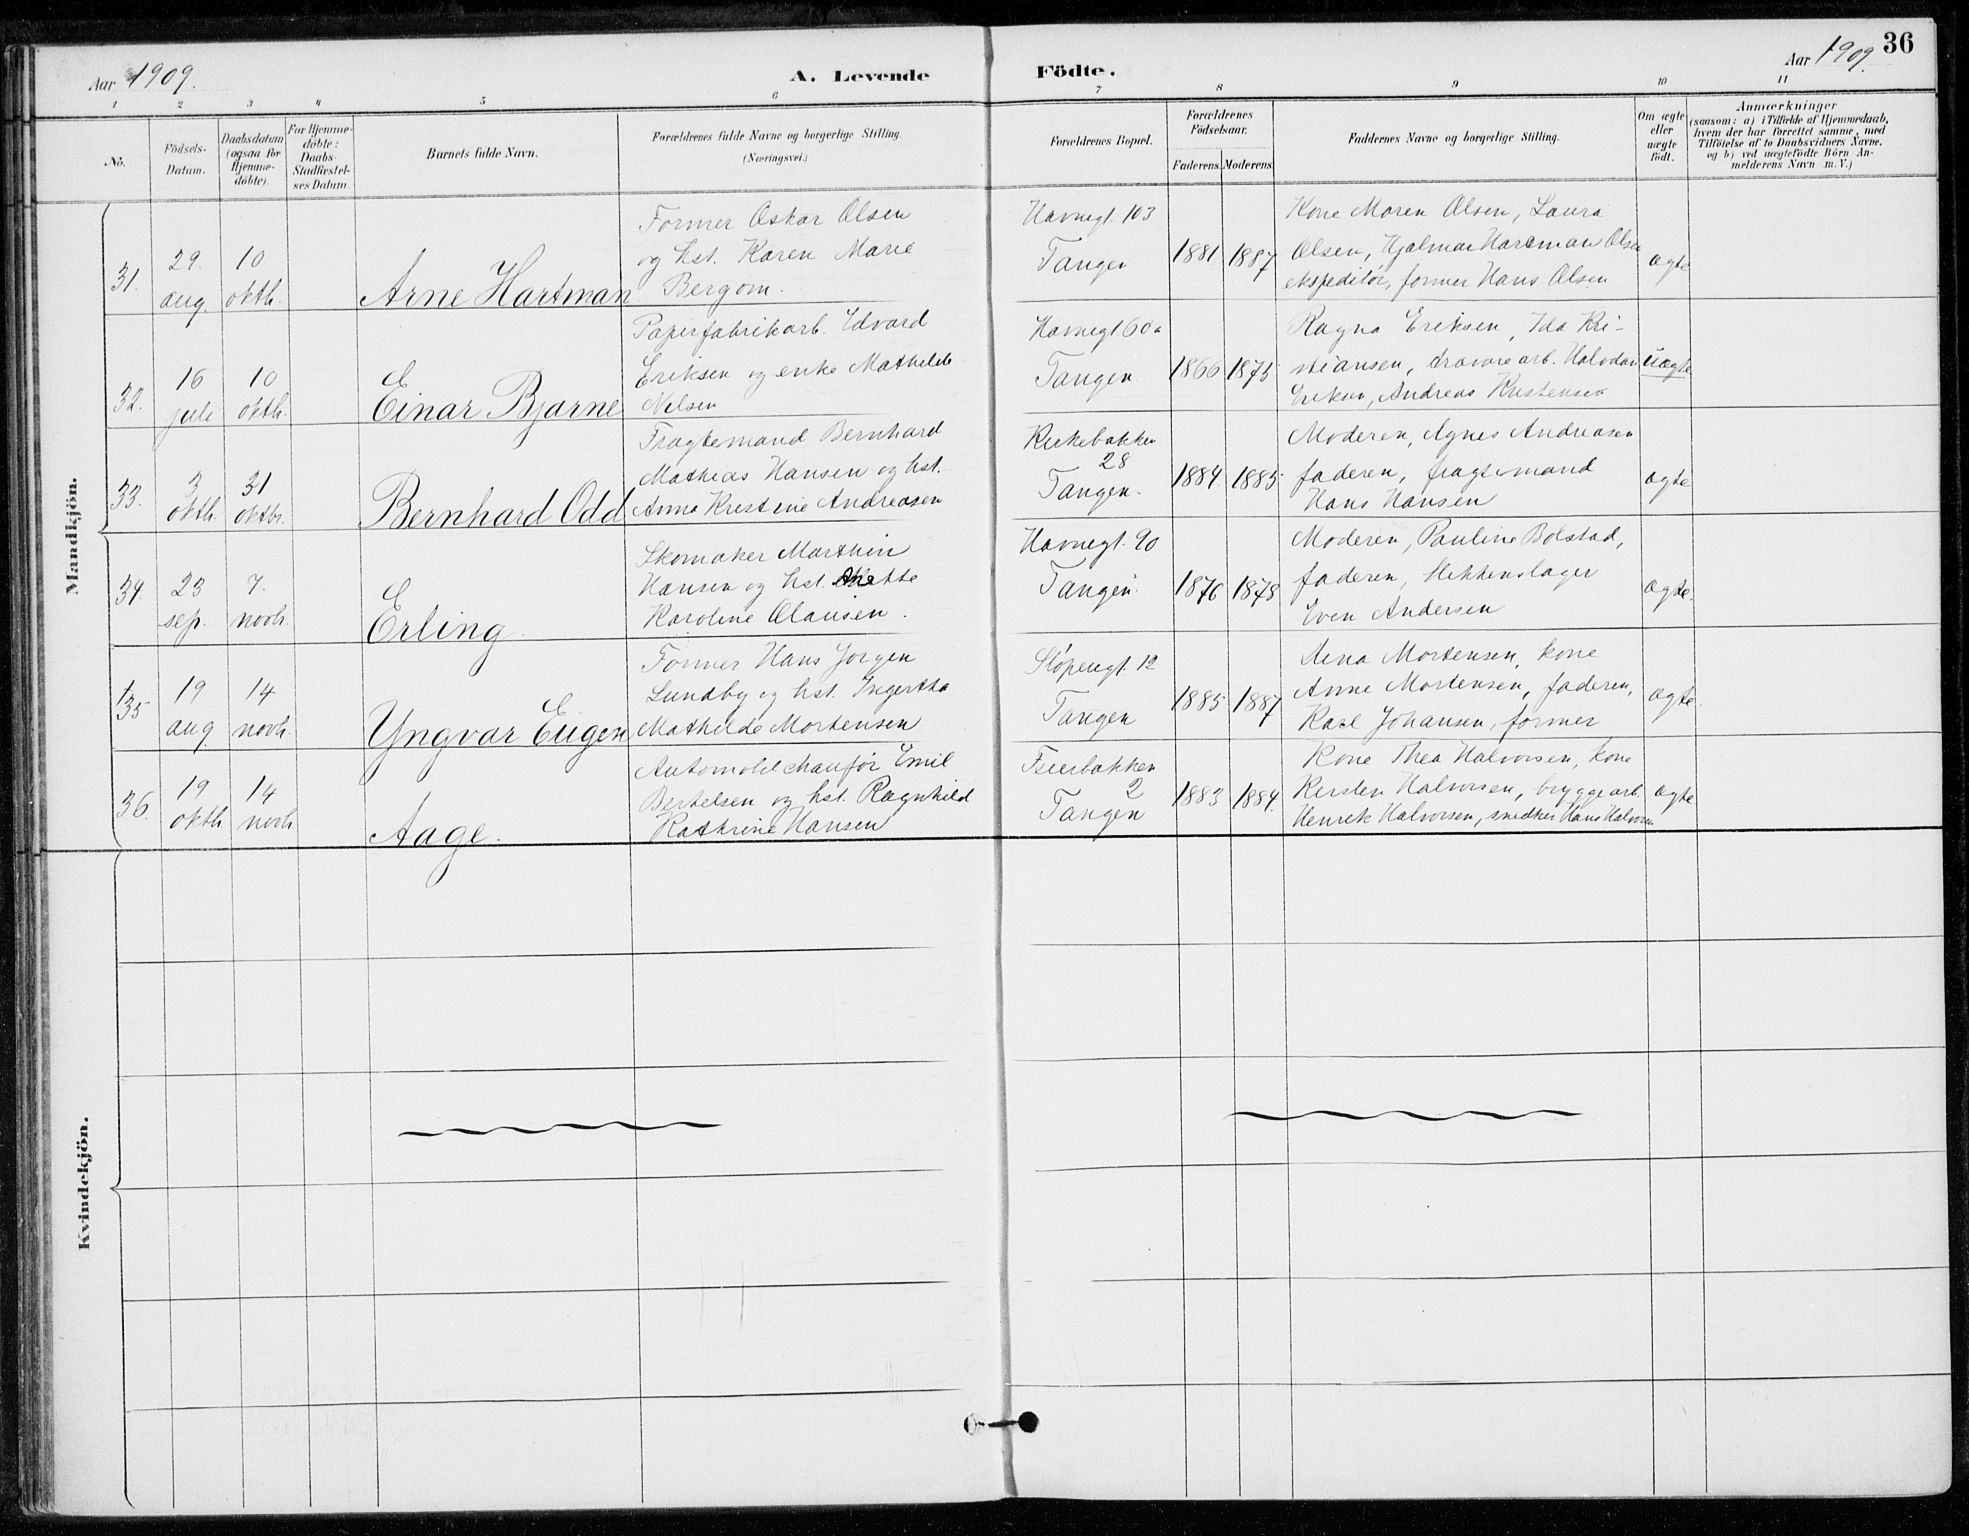 Aar 1909.
A. Levende
Födte.
Aar 1909.
36
1 2 3 4 5 6 7 8 9 10 11
No.
Födsels-
Datum.
Daabsdatum
(ogsaa for
Hjemme-
döbte).
For Hjemme-
döbte:
Daabs-
Stadfæstel-
ses Datum.
Barnets fulde Navn.
Forældrenes fulde Navne og borgerlige Stilling.
(Næringsvei.)
Forældrenes Bopæl.
Forældrenes
Födselsaar.
Faderens. Moderens.
Faddernes Navne og borgerlige Stilling.
Om ægte
eller
uægte
födt.
Anmærkninger
(saasom: a) i Tilfælde af Hjemmedaab,
hvem der har forrettet samme, med
Tilföielse af to Daabsvidners Navne,
og b) ved uægtefödte Börn An-
melderens Navn m. V.)
Mandkjön.
31.
29.
aug.
10
oktb.
Arne Hartman
Former Oskar Olsen
og hst. Karen Marie
Bergom.
Havnegt. 103
Tangen
1881 1887
Kone Maren Olsen, Laura
Olsen, Hjalmar Hartman Olsen
ekspeditør, former Hans Olsen
ægte
32.
16
juli
10
oktb.
Einar Bjarne
Papirfabrikarb. Edvard
Eriksen og enke Mathilde
Nilsen
Havnegt 60a
Tangen.
1866 1875
Ragna Eriksen, Ida Kri-
stiansen, travarearb. Halvdan
Eriksen, Andreas Kristensen
uægte
33.
3
oktb.
31
oktbr.
Bernhard Odd
Fragtemand Bernhard
Mathias Hansen og hst.
Anna Kristine Andreasen
Kirkebakken
28
Tangen.
1884 1885
Moderen, Agnes Andreasen
faderen, fragtemand
Hans Hansen
ægte
34.
23
sep.
7.
novb.
Erling
Skomaker Marthin
Hansen og hst. Anette
Karoline Olausen.
Havnegt. 90
Tangen.
1876 1878
Moderen, Pauline Bolstad,
faderen,
Even Andersen
ægte.
35
19
aug
14
novb.
Yngvar Eugen
Former Hans Jørgen
Lundby og hst. Ingertha
Mathilde Mortensen
Støperigt. 12
Tangen
1885 1887
Mortensen, kone
Anne Mortensen, faderen,
Karl Johansen, former
ægte.
36.
19
oktb
14
novb
Aage.
Automobilchauffør Emil
Bertelsen og hst. Ragnhild
Kathrine Hansen
Feierbakken
2
Tangen
1883 1884.
Kone Thea Halvorsen, kone
Kirsten Halvorsen, bryggearb.
Henrik Halvorsen, snedker Hans Halvorsen
ægte
Kvindekjön.